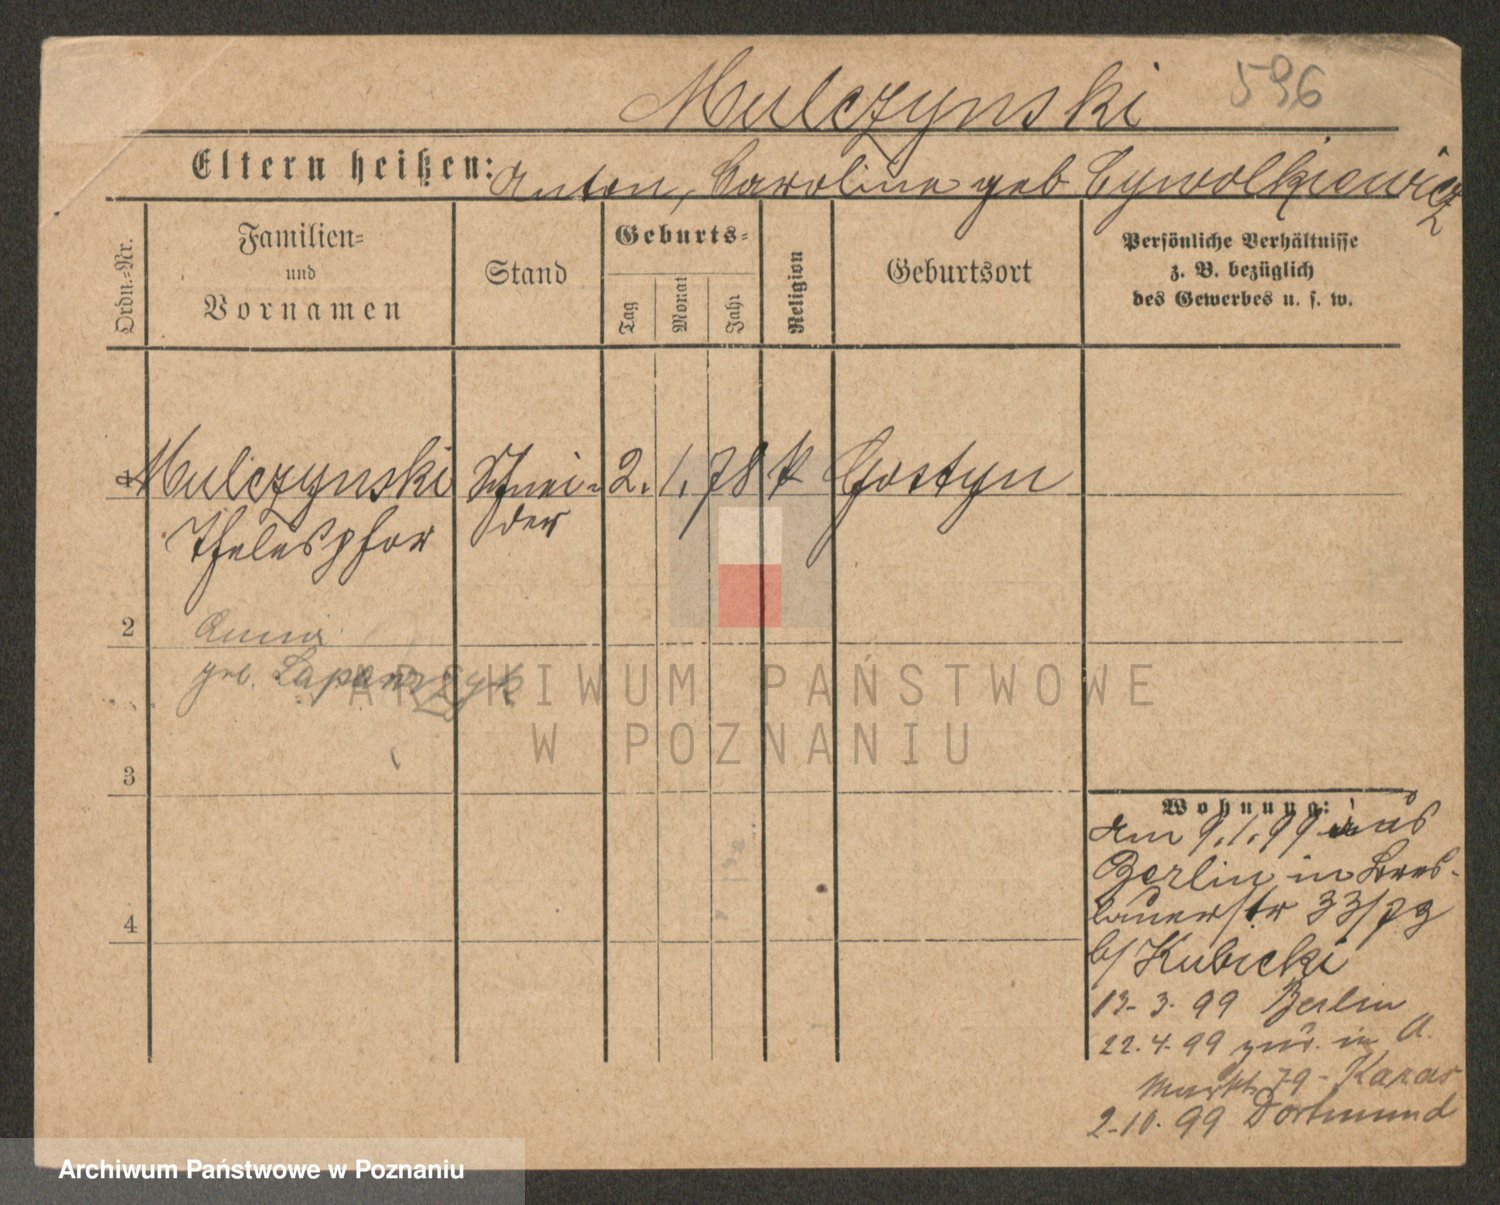 Mulczynski 596
Eltern heißen: Anton, Caroline geb Cywolkiewicz
Ordn.=Nr.
Familien=
und
Vornamen
Stand
Geburts=
Tag
Monat
Jahr
Religion
Geburtsort
Persönliche Verhältnisse
z. B. bezüglich
des Gewerbes u. s. w.
1 Mulczynski Schnei= 2. 1. 78 k Gostyn
Thelesphor der
2 Anna
geb. Lapawczyk
3
4
Wohnung:
Am 9.1.99 aus
Berlin in Bres-
lauerstr 33/
b/ Kubicki
13. 3. 99 Berlin
22. 4. 99 zur. in A.
Markt 79 - Karas
2. 10. 99 Dortmund
ARCHIWUM PAŃSTWOWE
W POZNANIU
Archiwum Państwowe w Poznaniu